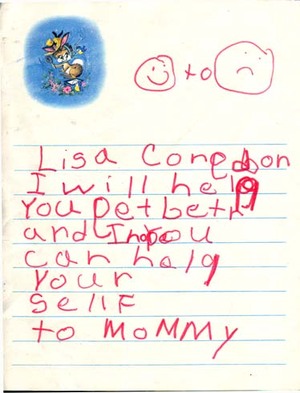 to
Lisa
I will help
you get
and I hope you
can help
your
sellf
to MoMMy